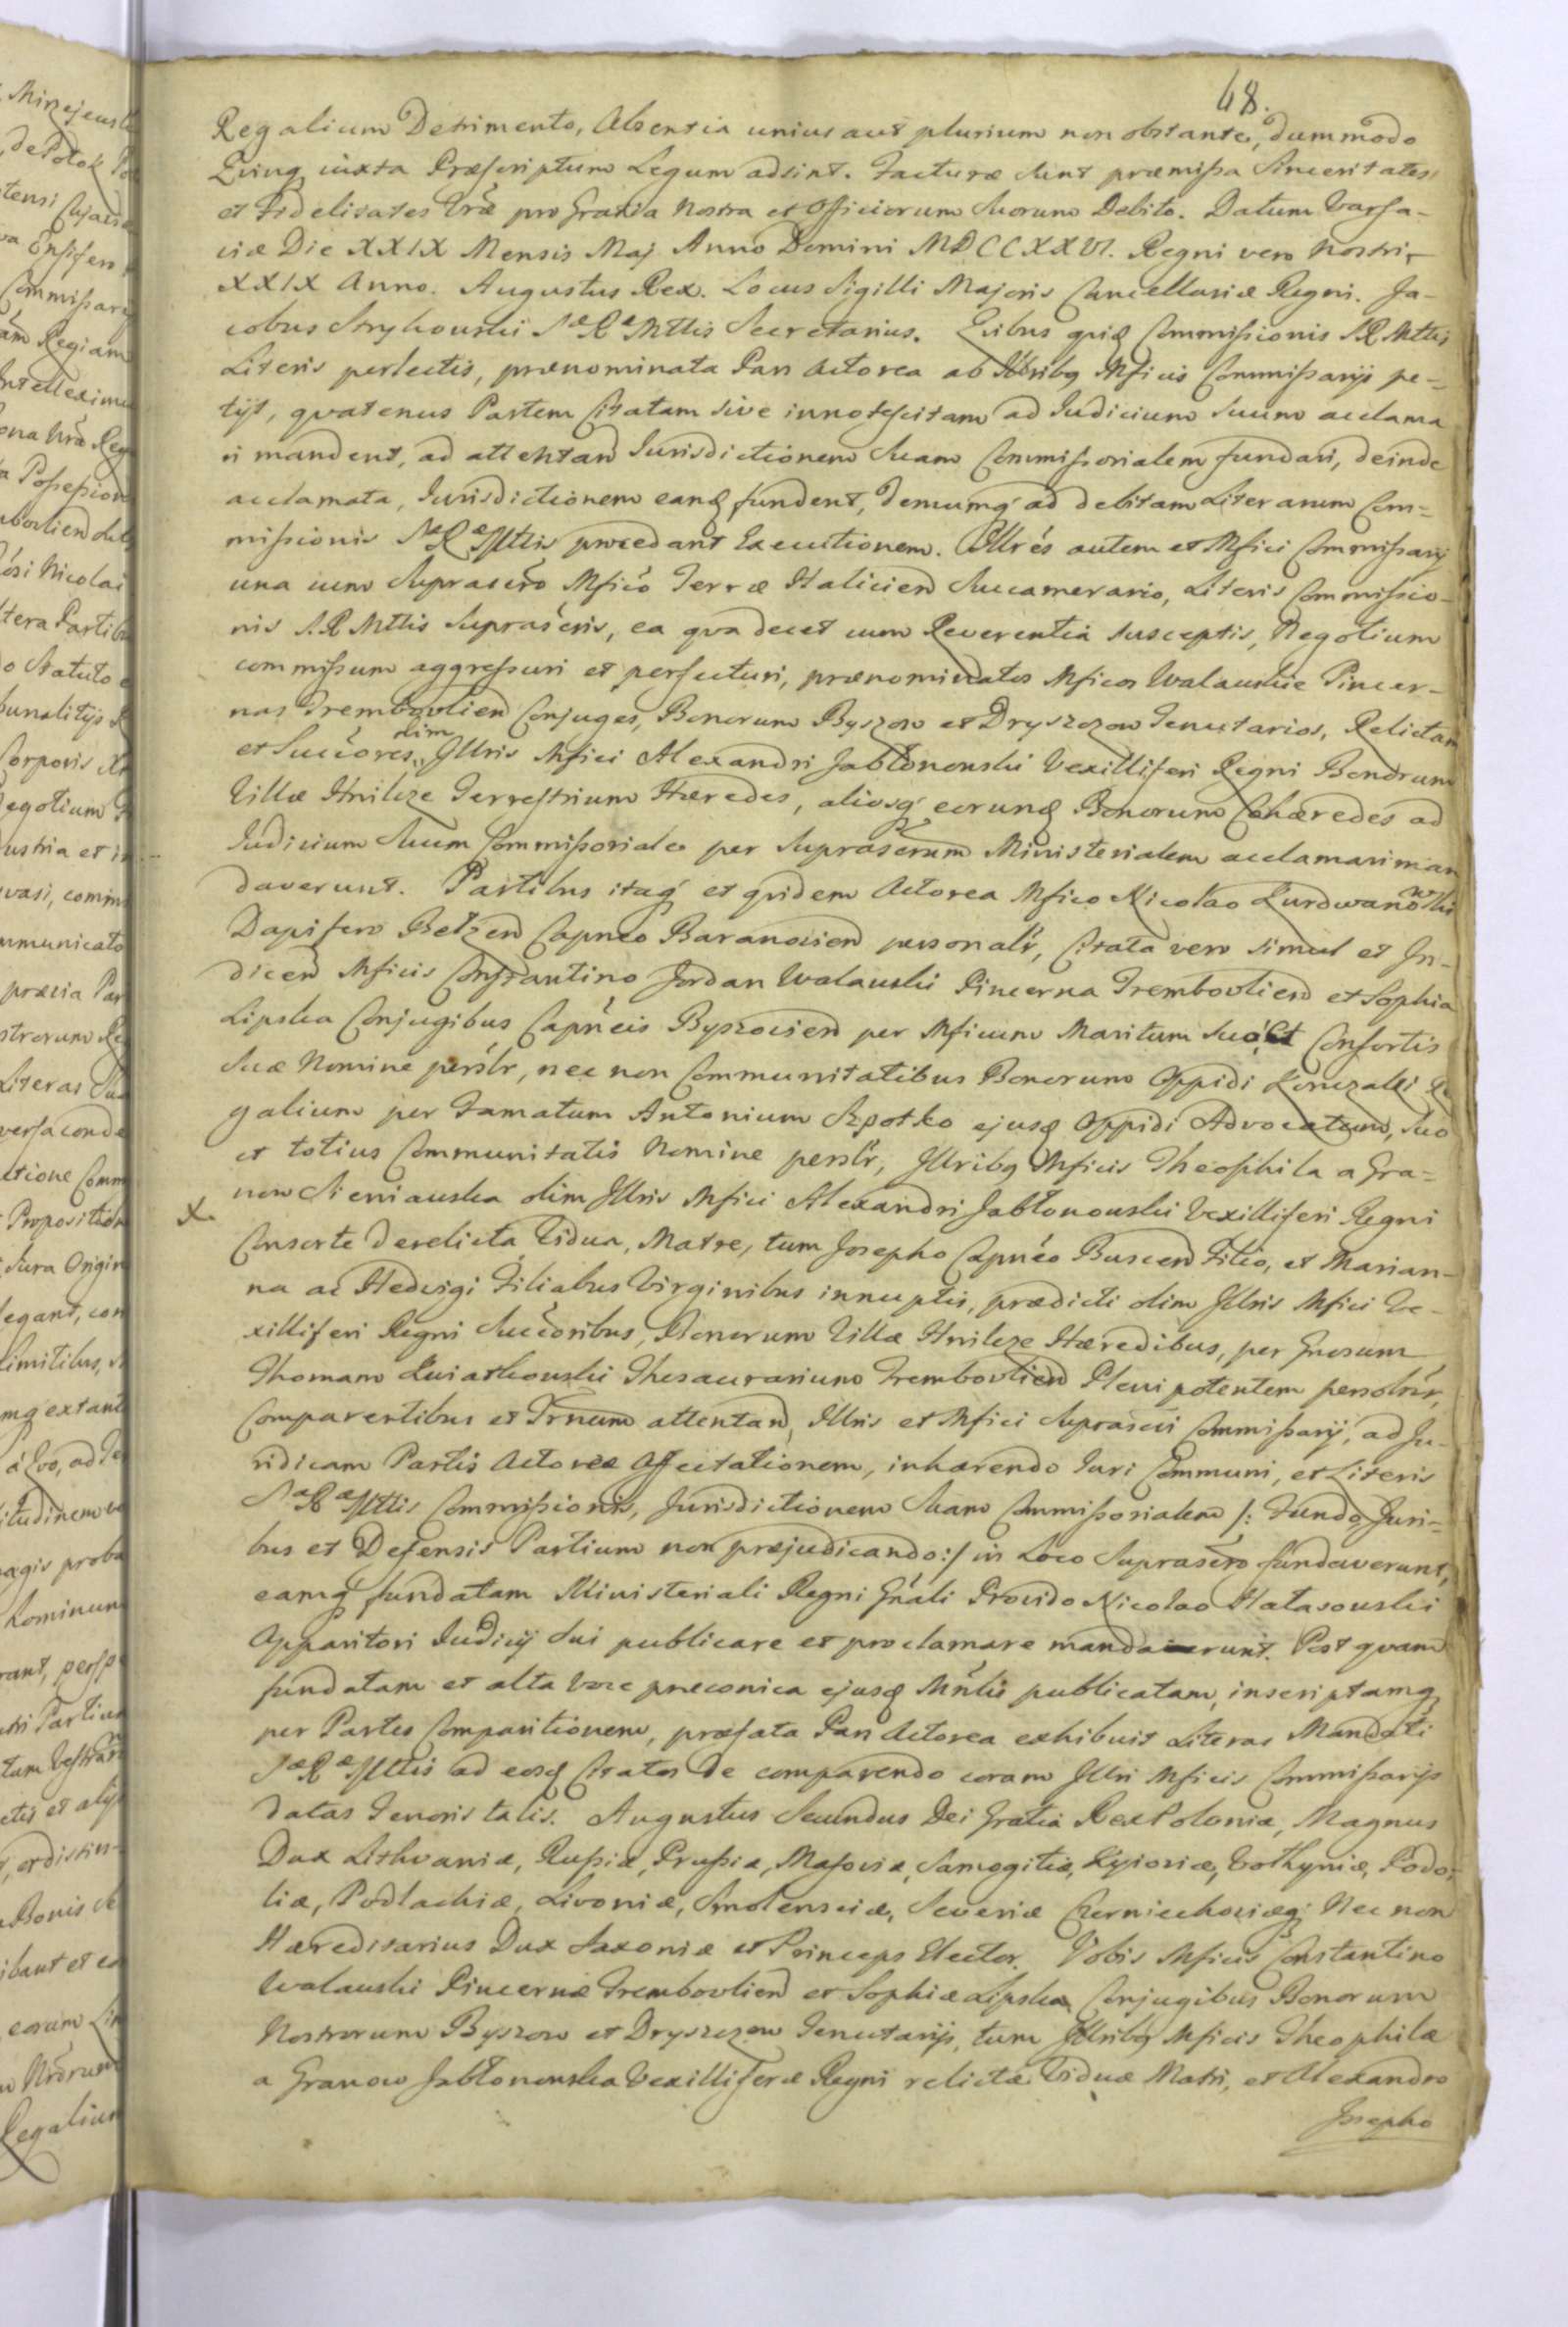 48.
Regalium Detrimento, Absentia unius aut plurium non obstante, dummodo
juxta Præscriptum Legum adsint. Facturæ sunt præmissa Sinceritates
et Fidelitates Vræ pro Gratia Nostra et Officiorum Suorum Debito. Datum Varsa-
viæ Die XXIX Mensis Maj Anno Domini MDCCXXVI. Regni vero Nostri
XXIX Anno. Augustus Rex. Locus Sigilli Majoris Cancellariæ Regni. Ja-
cobus Stryhouski SæRæMttis Secretarius. Quibus quidē Commissionis SRMttis
Literis perlectis, prænominata Pars Actorea ab Illribq Mficis Commissarijs pe-
tijt, quatenus Partem Citatam sive innotescitam ad Judicium Suum acclama
ri mandent, ad attentand Jurisdictionem Suam Commissorialem fundari, deinde
acclamata, Jurisdictionem eandē fundent, demumq ad debitam Literarum Com-
missionis SæRæMttis procedant Executionem. Illrēs autem et Mfici Commissarij
una cum Suprascro Mfico Terræ Haliciend Succamerario, Literis Commissio-
nis S.R.Mttis Suprascris, ea qva decet cum Reverentia susceptis, Negotium
commissum aggressuri et perfecturi, prænominatos Mficos Walauskie Pincer-
nas Trembovliend Conjuges, Bonorum Byszow et Dryszczow Tenutarios, Relictam
et Succores olim Illris Mfici Alexandri Jabłonouski Vexilliferi Regni Bonorum
Villæ Hnilcze Terrestrium Hæredes, aliosq eorundē Bonorum Cohæredes ad
Judicium Suum Commissoriale per Suprascrum Ministerialem acclamari man
daverunt. Partibus itaq et qvidem Actorea Mfico Nicolao Kurdwanowski
Dapifero Betzend Capneo Baranoviend personalr, Citata vero simul et In-
dicend Mficis Constantino Jordan Walauski Pincerna Trembovliend et Sophia
Lipska Conjugibus Capneis Byszoviend per Mficum Maritum Suo et Consortis
Suæ Nomine persolr, nec non Communitatibus Bonorum Oppidi Konczaki Re
galium per Famatum Antonium Szpotko ejusdē Oppidi Advocatum, Suo
et totius Communitatis Nomine persolr, Illribq Mficis Theophila a Gra-
now Sieniauska olim Illris Mfici Alexandri Jabłonouski Vexilliferi Regni
X
Consorte derelicta Vidua, Matre, tum Josepho Capneo Buscend Filio, et Marian-
na ac Hedvigi Filiabus Virginibus innuptis, prædicti olim Illris Mfici Ve-
xilliferi Regni Succoribus, Bonorum Villæ Hnilcze Hæredibus, per Gnosum
Thomam Kwiatkouski Thesaurarium Trembovliend Plenipotentem persolnr,
Comparentibus et Trnum attentand, Illris et Mfici Suprascri Commissarij, ad Ju-
ridicam Partis Actoreæ Affectationem, inhærendo Juri Communi, et Literis
SæRæMttis Commissionis, Jurisdictionem Suam Commissorialem /: Fundo, Juri-
bus et Defensis Partium non præjudicando:/ in Loco Suprascro fundaverunt,
eamq fundatam Ministeriali Regni Gnali Provido Nicolao Hatasouski
Apparitori Judicij Sui publicare et proclamare mandaverunt. Post qvam
fundatam et alta voce præconica ejusdē Mnlis publicatam, inscriptamq
per Partes Comparitionem, præfata Pars Actorea exhibuit Literas Mandati
SæRæMttis ad eosdē Citatos de comparendo coram Illri Mficis Commissarijs
datas Tenoris talis. Augustus Secundus Dei Gratia Rex Poloniæ, Magnus
Dux Lithvaniæ, Russiæ, Prussiæ, Masoviæ, Samogitiæ, Kyioviæ, Volhyniæ, Podo-
liæ, Podlachiæ, Livoniæ, Smolensciæ, Severiæ Czerniechoviæq; Nec non
Hæreditarius Dux Saxoniæ et Princeps Elector. Vobis Mficis Constantino
Walauski Pincernæ Trembovliend et Sophiæ Lipska Conjugibus Bonorum
Nostrorum Byszow et Dryszczow Tenutarijs, tum Illribq Mficis Theophilæ
a Granow Jabłonouska Vexilliferæ Regni relictæ Viduæ Matri, et Alexandro
Josepho